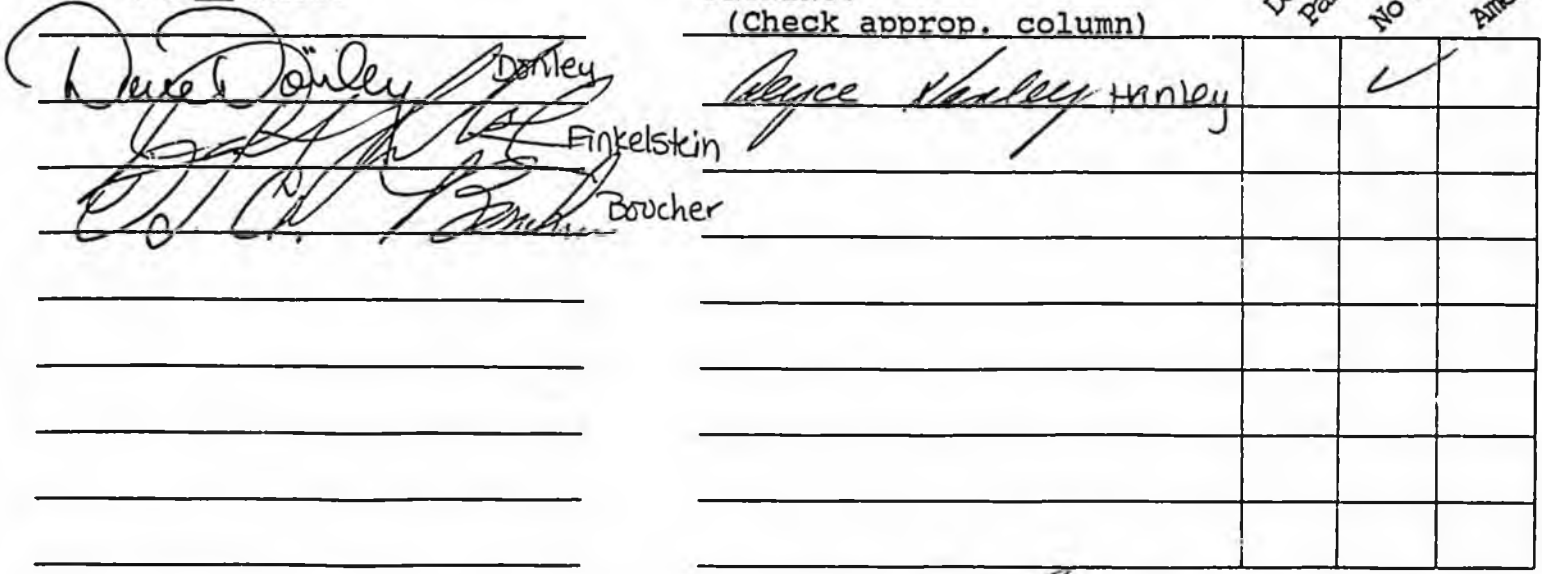 (Check approp. column)
No
Dave Donley Donley
Finkelstein
Boucher
Alyce Hanley Hanley ✓